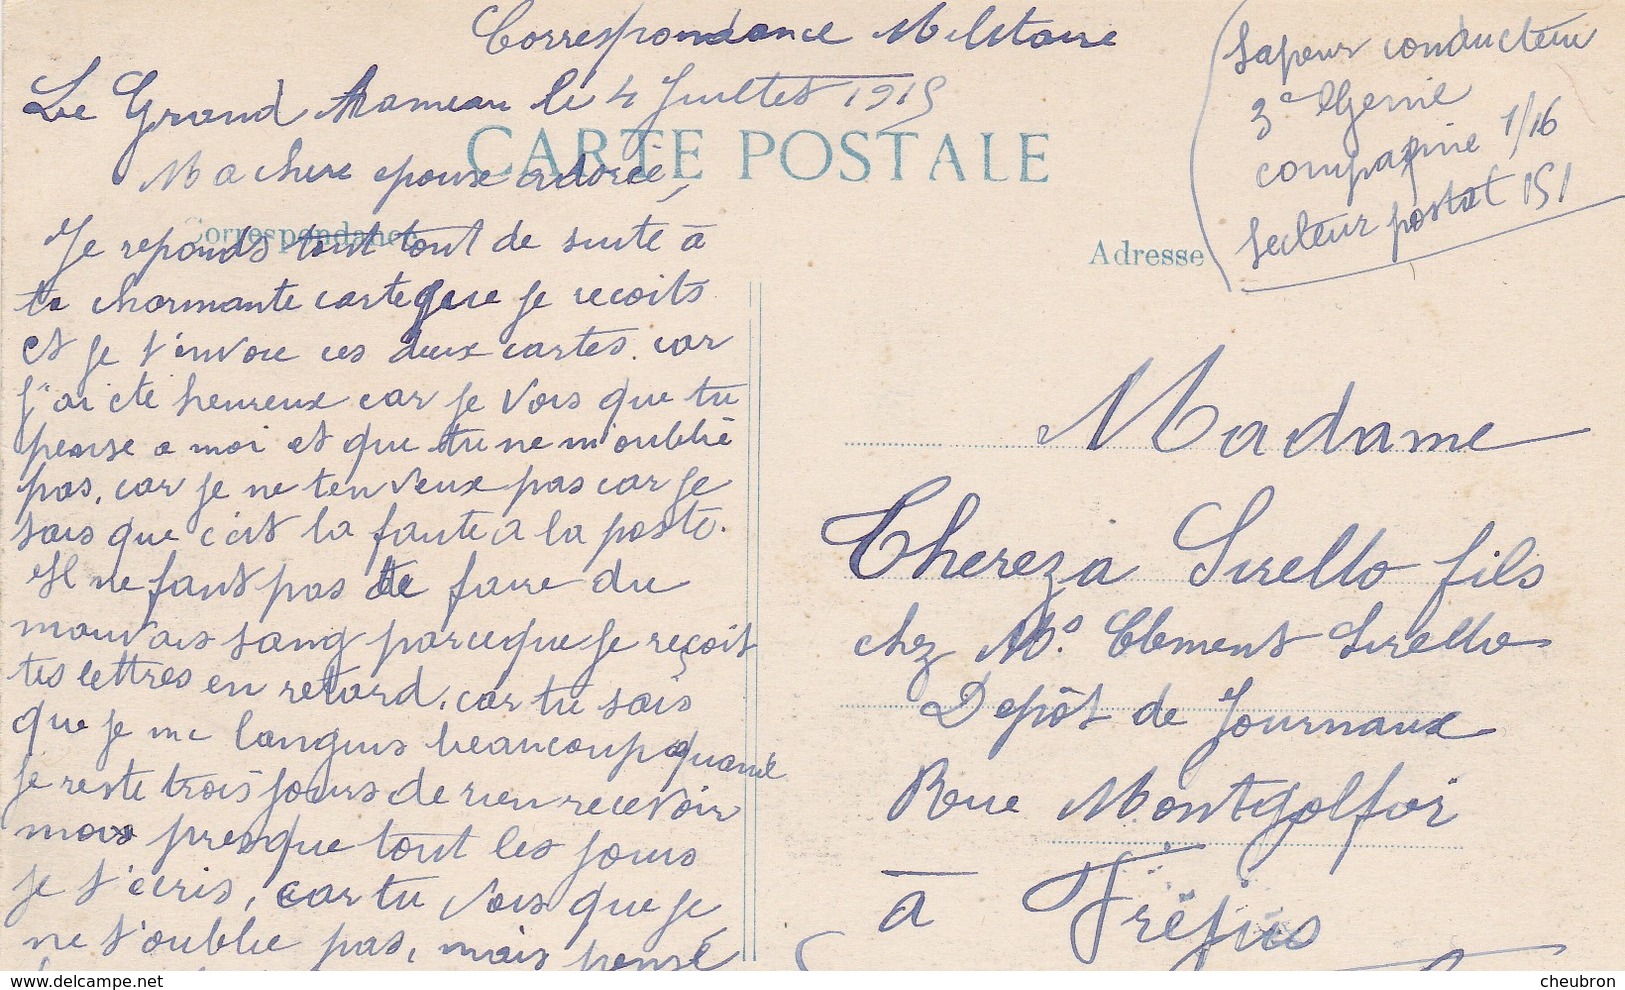 Correspondance Militaire
Le Grand Hameau le 4 Juillet 1915
CARTE POSTALE
Ma chere epouse adorée,
Correspondance
Je reponds tout tout de suite à
ta charmante carte que je recoits
et je t'envoie ces deux cartes. car
j'ai eté heureux car je vois que tu
pense a moi et que tu ne m'oublié
pas, car je ne t'en veux pas car je
sais que c'est la faute a la poste.
Il ne faut pas te faire du
mauvais sang parceque je reçoit
tes lettres en retard, car tu sais
que je me languis beaucoup quand
je reste trois jours de rien recevoir
mais presque tout les jours
je t'ecris, car tu vois que je
ne t'oublie pas, mais pensé
Sapeur conducteur
3e Genie
compagnie 1/16
Secteur postal 151
Adresse
Madame
Thereza Sirello fils
chez Ms. Clement Sirello
Depôt de Journaux
Rue Montgolfier
à Fréjus
www.delcampe.net
cheubron